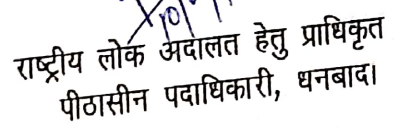 राष्ट्रीय लोक अदालत हेतु प्राधिकृत
पीठासीन पदाधिकारी, धनबाद।